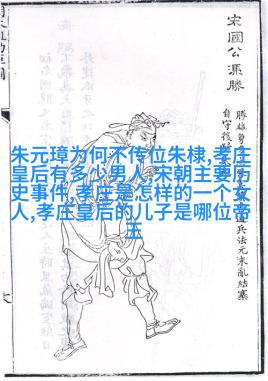 朱元璋为何不传位朱棣,孝庄
皇后有多少男人,宋朝主要历
史事件,孝庄是怎样的一个女
人,孝庄皇后的儿子是哪位帝
王
宋國公馮勝
勝雄勇兵法元末亂結寨
自守後